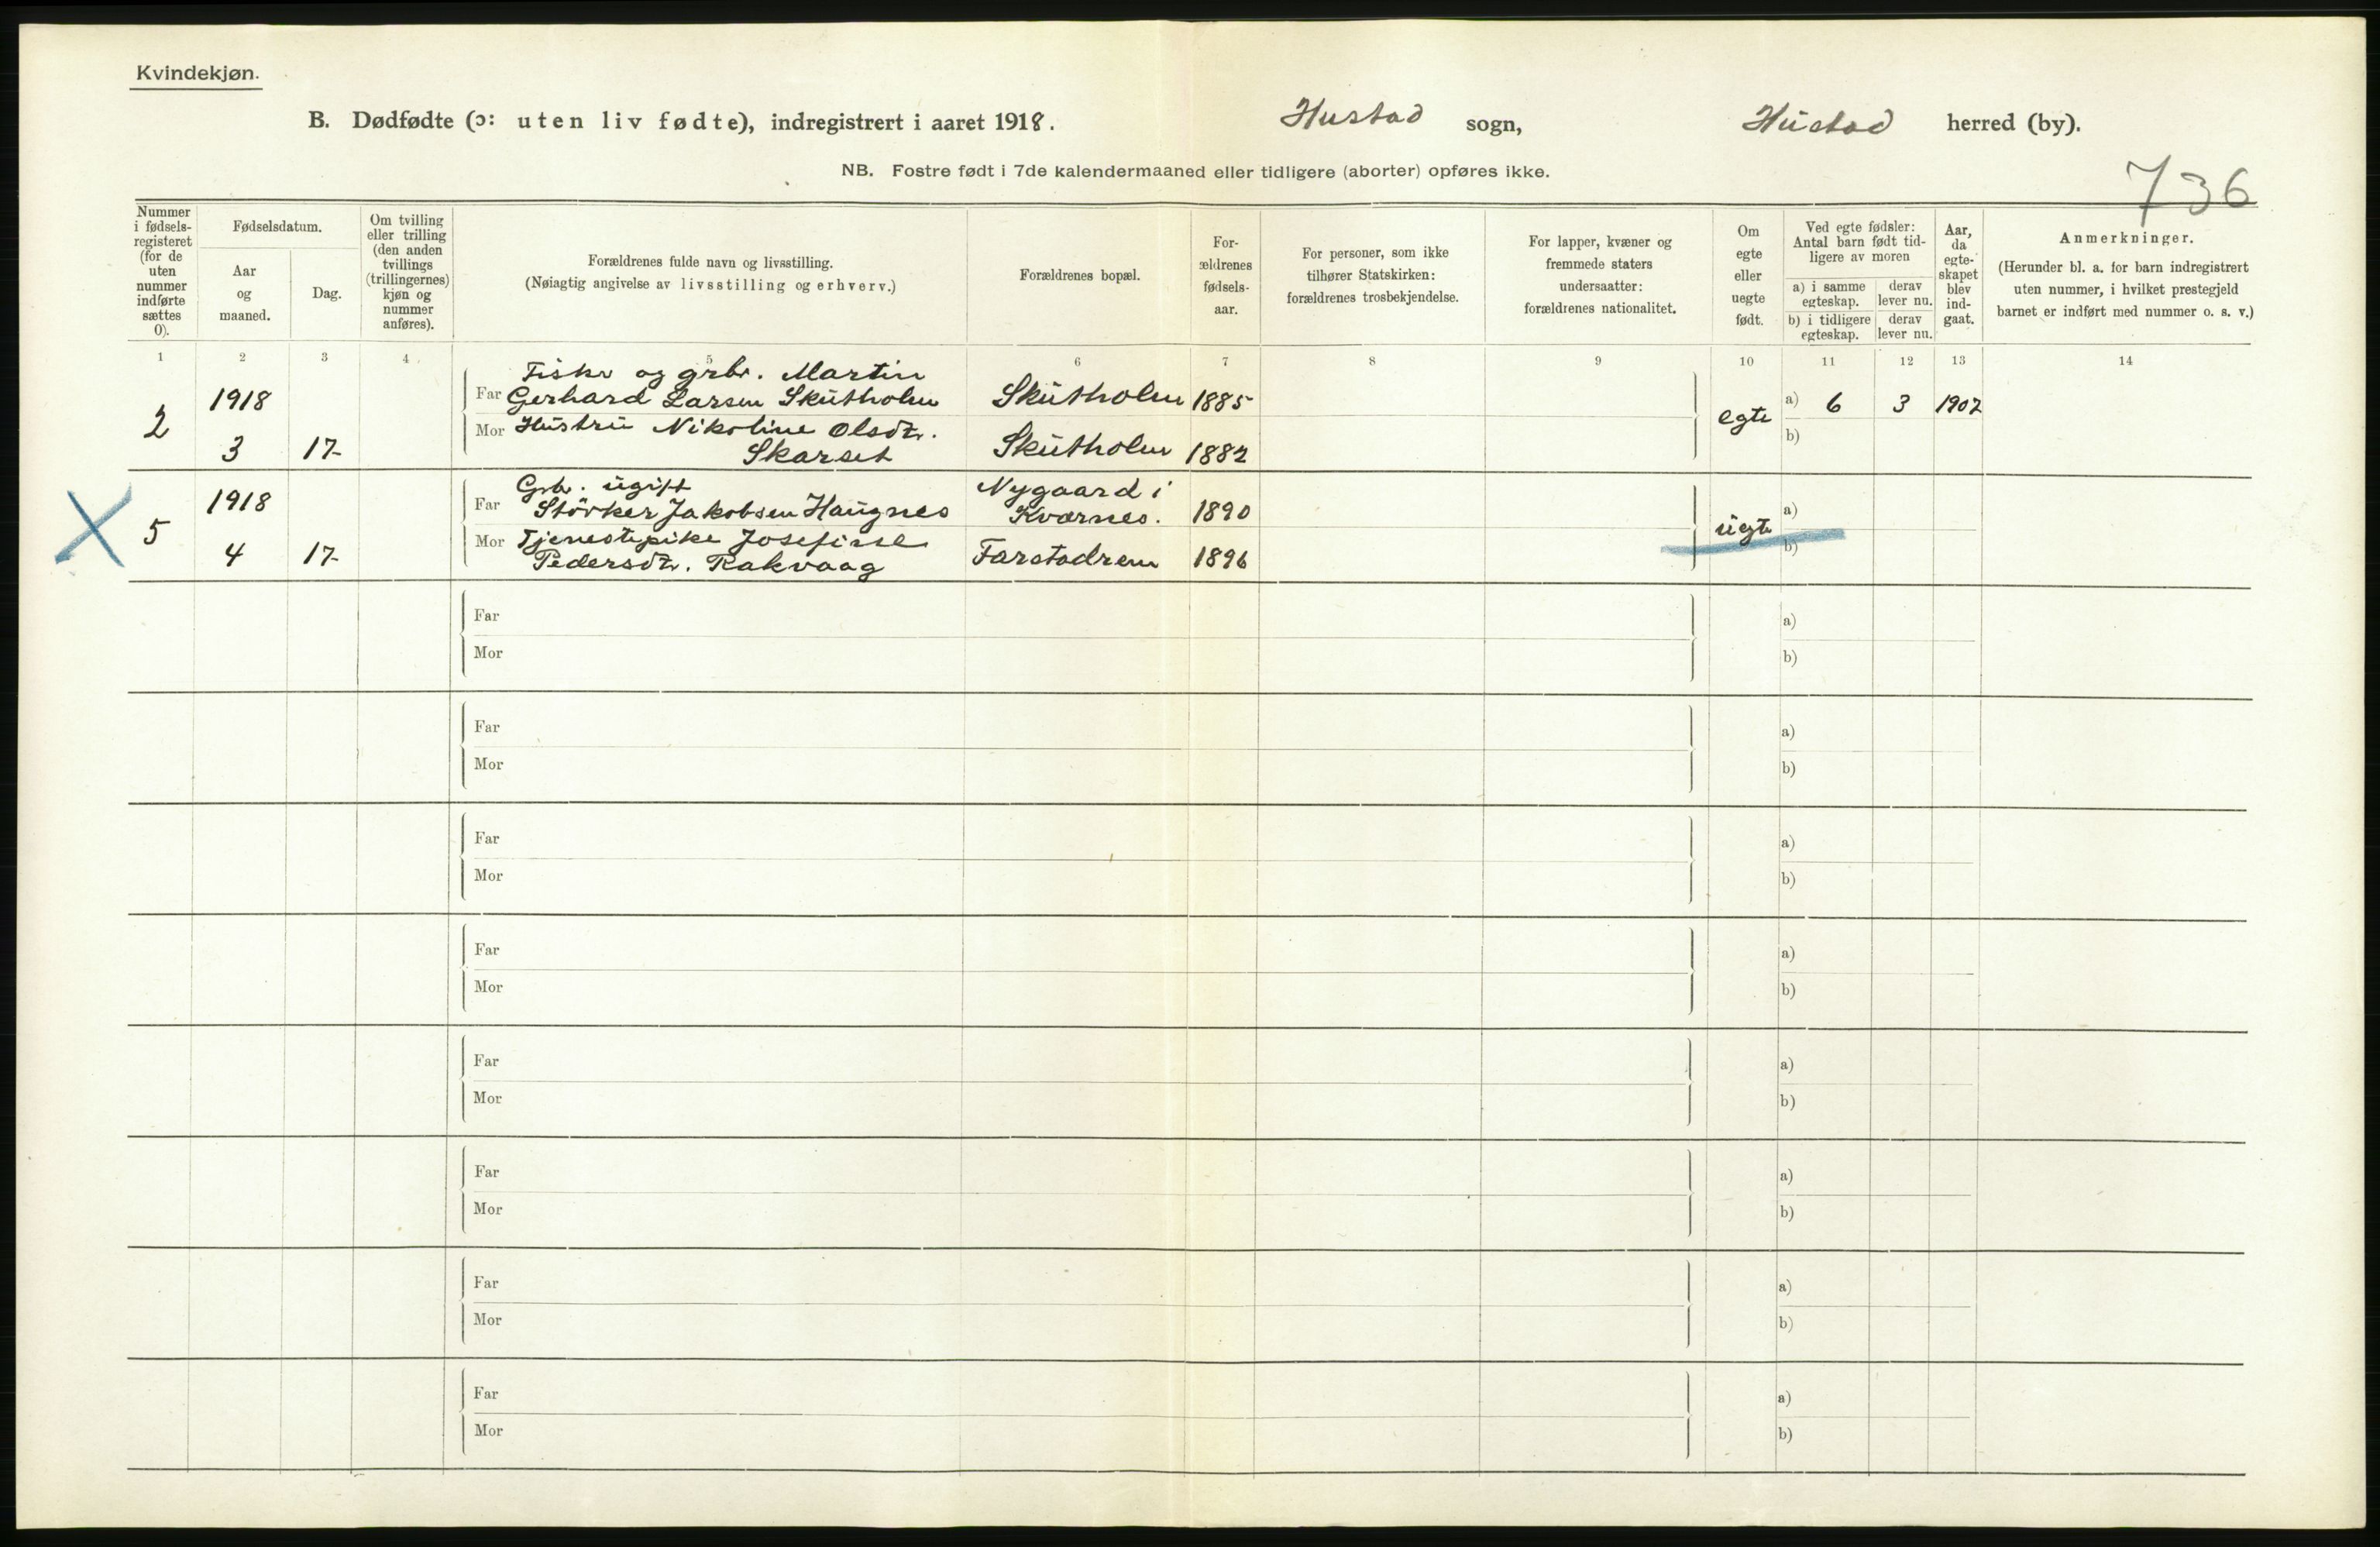 Kvindekjøn.
B. Dødfødte (ɔ: uten liv fødte), indregistrert i aaret 1918. Hustad sogn, Hustad herred (by).
NB. Fostre født i 7de kalendermaaned eller tidligere (aborter) opføres ikke.
736
Nummer i fødsels-registeret (for de uten nummer indførte sættes 0).
Fødselsdatum.
Aar og maaned.
Dag.
Om tvilling eller trilling (den anden tvillings (trillingernes) kjøn og nummer anføres).
Forældrenes fulde navn og livsstilling.
(Nøiagtig angivelse av livsstilling og erhverv.)
Forældrenes bopæl.
For-ældrenes fødsels-aar.
For personer, som ikke tilhører Statskirken: forældrenes trosbekjendelse.
For lapper, kvæner og fremmede staters undersaatter: forældrenes nationalitet.
Om egte eller uegte født.
Ved egte fødsler: Antal barn født tid-ligere av moren
a) i samme egteskap.
derav lever nu.
b) i tidligere egteskap.
derav lever nu.
Aar, da egte-skapet blev ind-gaat.
Anmerkninger.
(Herunder bl. a. for barn indregistrert uten nummer, i hvilket prestegjeld barnet er indført med nummer o. s. v.)
1 2 3 4 5 6 7 8 9 10 11 12 13 14
Fisker og grbr. Martin
2 1918 Far Gerhard Larsen Skutholm Skutholm 1885 egte a) 6 3 1907
Mor Hustru Nikoline Olsdtr. b)
3 17 Skarset Skutholm 1882
Grbr. ugift Nygaard i
X 5 1918 Far Störker Jakobsen Haugnes Kvernes. 1890 uegte a)
Mor Tjenestepike Josefine b)
4 17 Pedersdtr. Rakvaag Farstadrem 1896
Far a)
Mor b)
Far a)
Mor b)
Far a)
Mor b)
Far a)
Mor b)
Far a)
Mor b)
Far a)
Mor b)
Far a)
Mor b)
Far a)
Mor b)